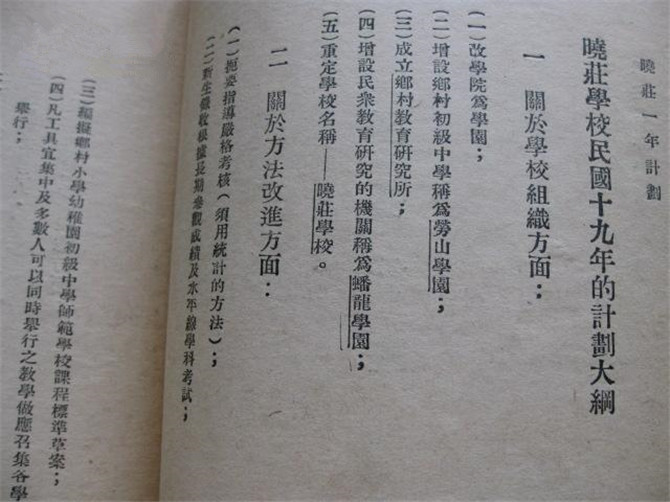 曉莊一年計劃
曉莊學校民國十九年的計劃大綱
一 關於學校組織方面：
(一)改學院爲學園；
(二)增設鄉村初級中學稱爲勞山學園；
(三)成立鄉村教育研究所；
(四)增設民衆教育研究的機關稱爲蟠龍學園；
(五)重定學校名稱——曉莊學校。
二 關於方法改進方面：
(一)扼要指導嚴格考核(須用統計的方法)；
(二)新生徵收根據長期參觀成績及水平線學科考試；
(三)編擬鄉村小學幼稚園初級中學師範學校課程標準草案；
(四)凡工具宜集中及多數人可以同時舉行之教學做應召集各學
舉行；